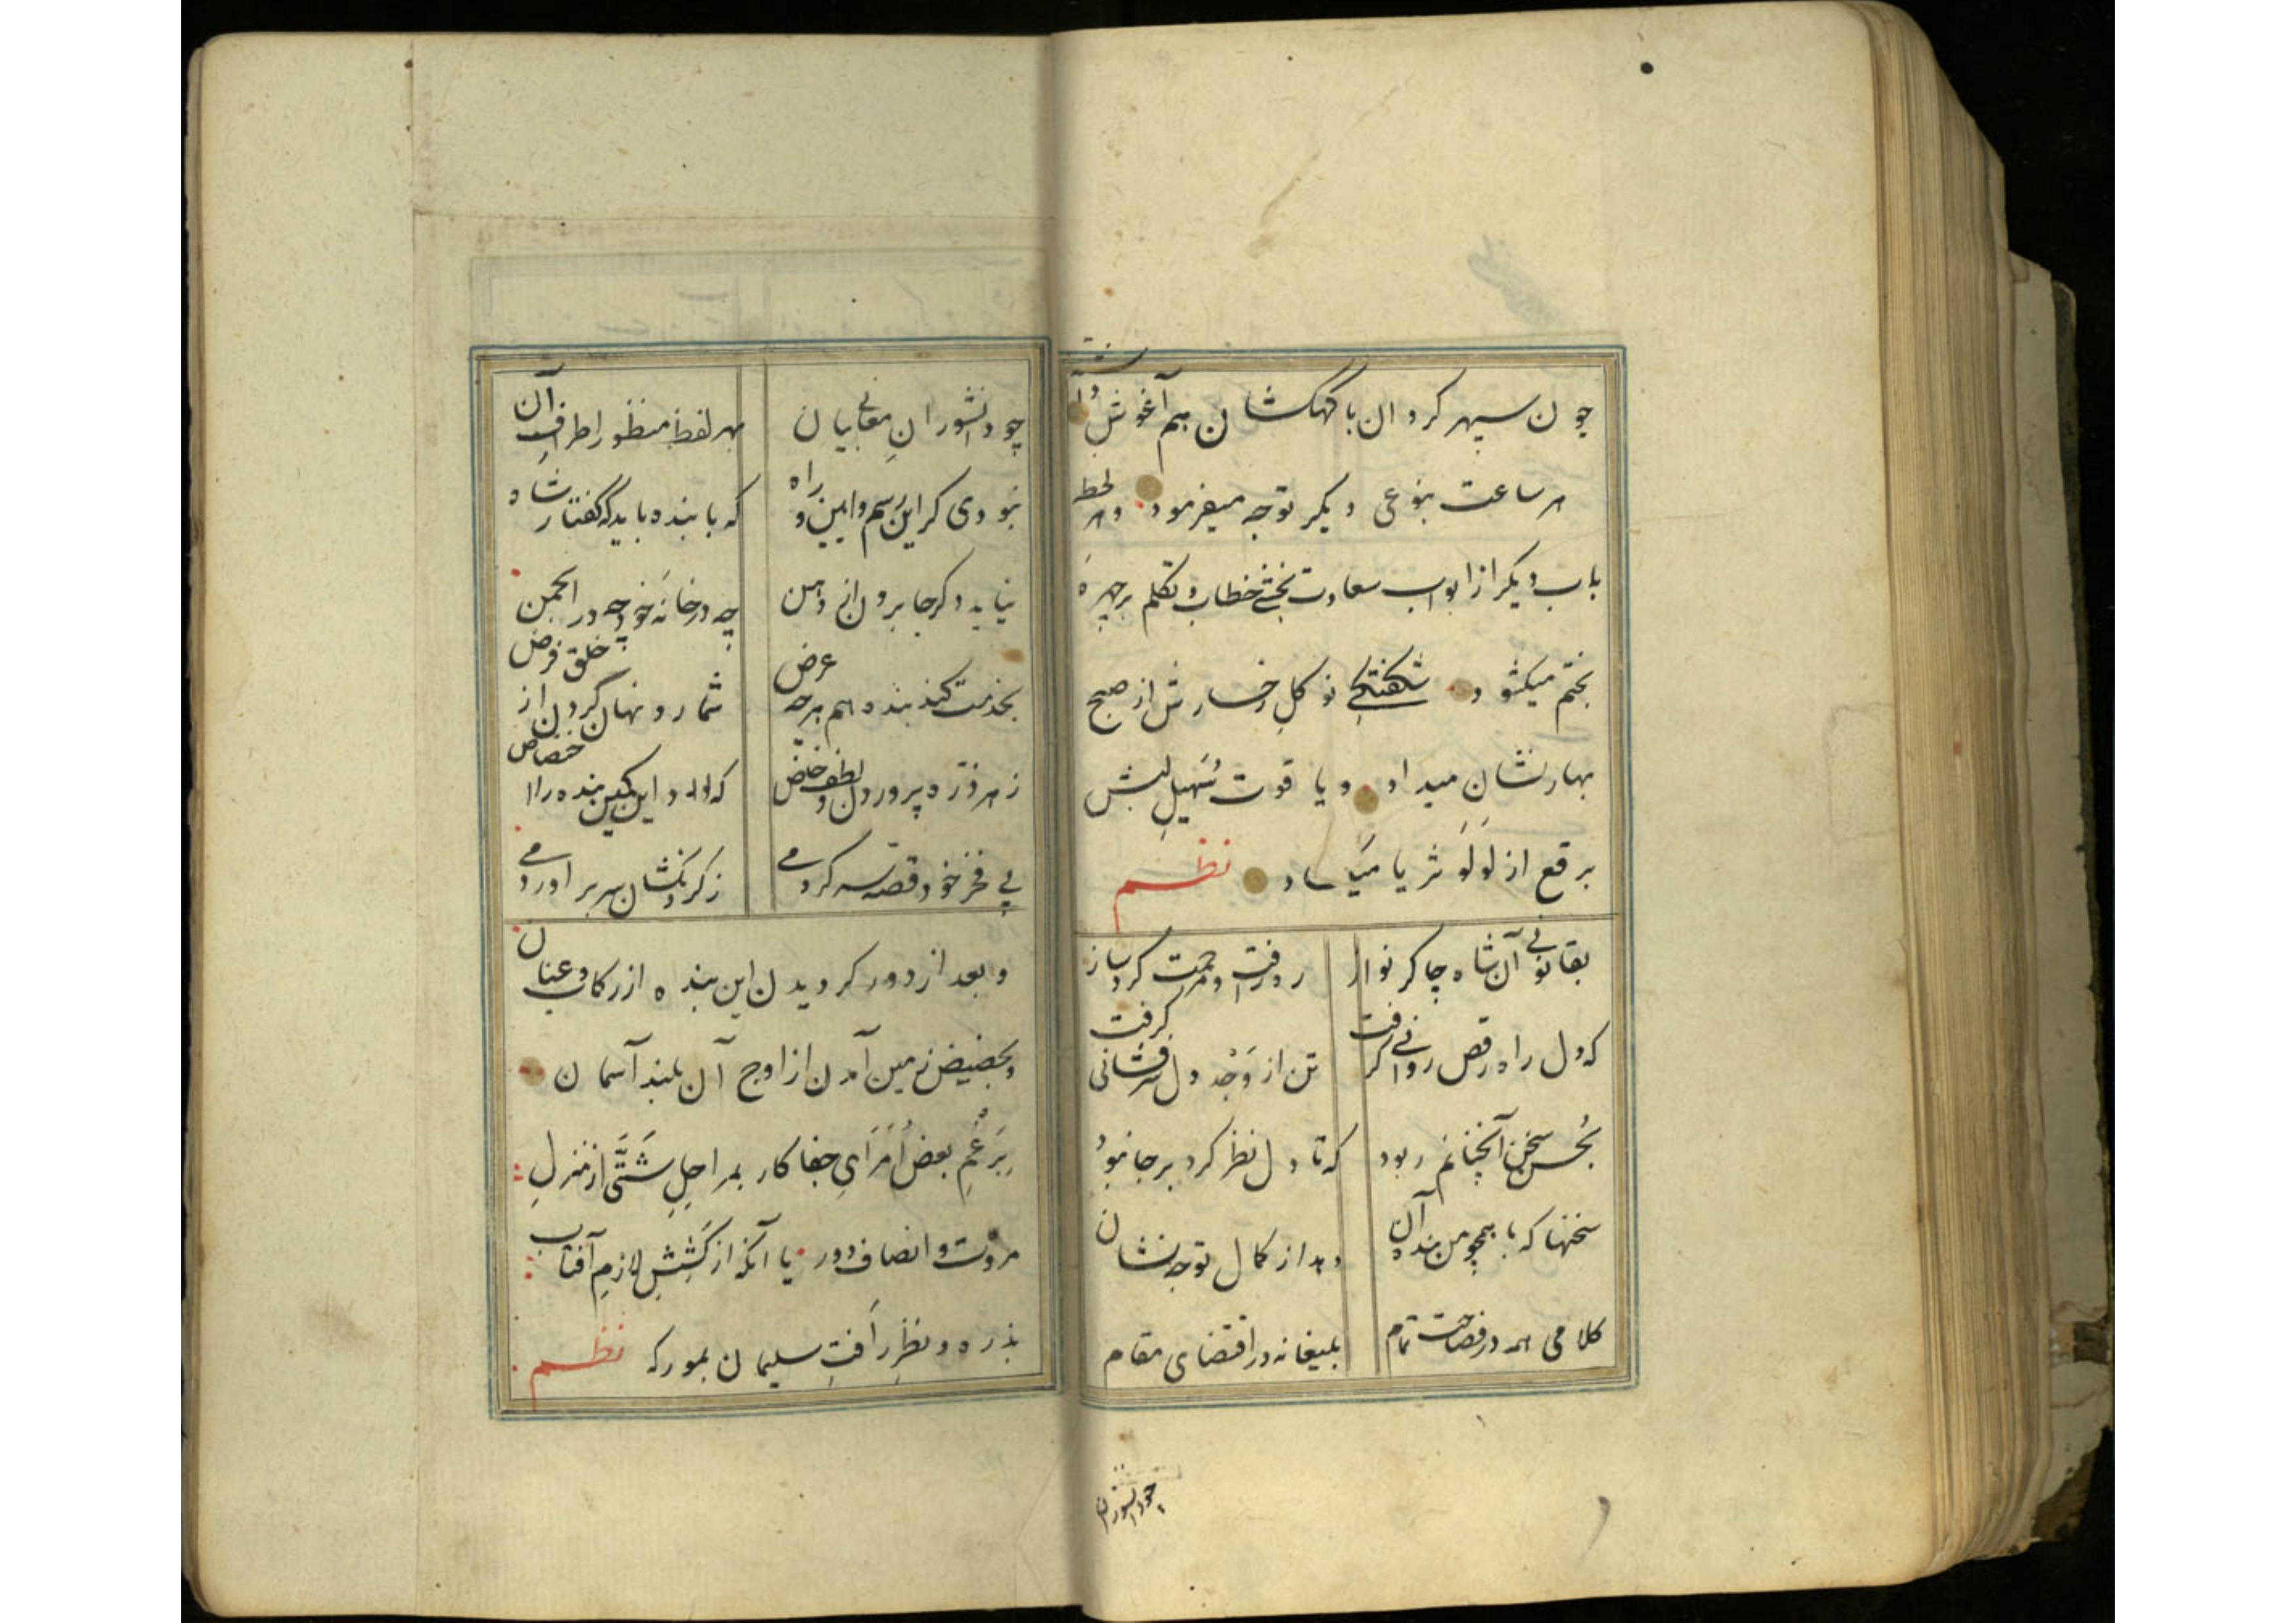 چون سپهر کردان با کهکشان هم آغوش
هر ساعت بنوعی دیکر توجه میفرمود و هر لحظه
باب دیکر از ابواب سعادت بخشی خطاب و تکلم بر چهره
بختم میکشود شکفتکی نو کل رخسارش از صبح
بهار نشان میداد و یاقوت سُهیل لبش
برقع از لَولَو ثریا میکساد نظم
بقانونی آن شاه چاکر نواز در رافت و مرحمت کرد باز
که دل راه رقص روانی کرفت تن از وَجْد دل سرفشانی کرفت
بحُسن سخن آنچنانم ربود که تا دل نظر کرد بر جا نبوُد
سخنها که با همچو من بنده آن دهد از کمال توجه نشان
کلامی همه در فصاحت تمام بلیغانه در اقتضای مقام
چو دانشوران
چو دانشورانِ معانی بیان بهر لفظ منظور اطرافِ آن
نبودی کر این رسم و آیین و راه که با بنده باید که گفتار شاه
نیاید دکر جا برون از دهن چه در خانَه خود چه در انجمن
بخدمت کند بنده هم هرچه عرض شمارد نهان کردن از خلق فرض
ز هر ذرّه پروردن و لطف خاص که داد این کمین بنده را اختصاص
پی فخر خود قصّه سر کردمی ز کردنکشان سر بر اوردمی
و بعد از دور کردیدن این بنده از رکاب و عنان
و بحضیض زمین آمدن از اوج آن بلند آسمان
بِرَغْمِ بعض اُمَرَایِ جفا کار بمراحِلِ شَتَّی از منزلِ
مروّت و انصاف دور یا آنکه از کَشِشِ لازمِ آفتاب
بذره و نظرِ رَافتِ سلیمان بمور که نظم